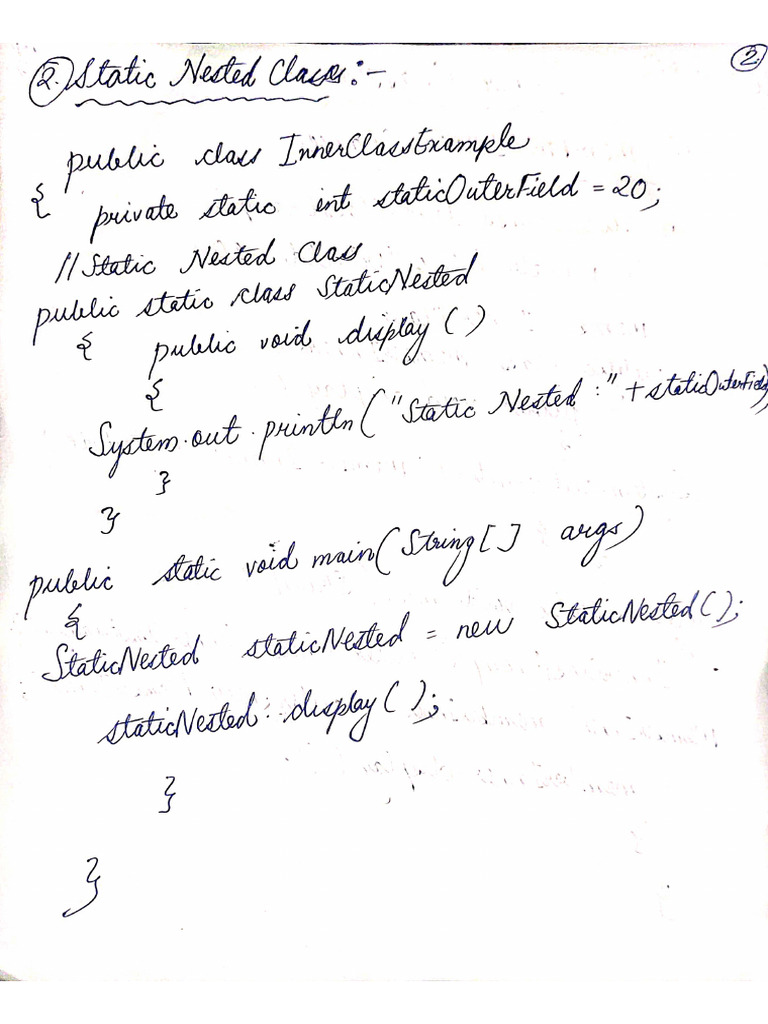 2. Static Nested Classes:-
2.
public class InnerClassExample
{ private static int staticOuterField = 20;
//Static Nested Class
public static class StaticNested
{ public void display()
{
System.out.println("Static Nested :" + staticOuterField);
}
}
public static void main(String[] args)
{
StaticNested staticNested = new StaticNested();
staticNested.display();
}
}